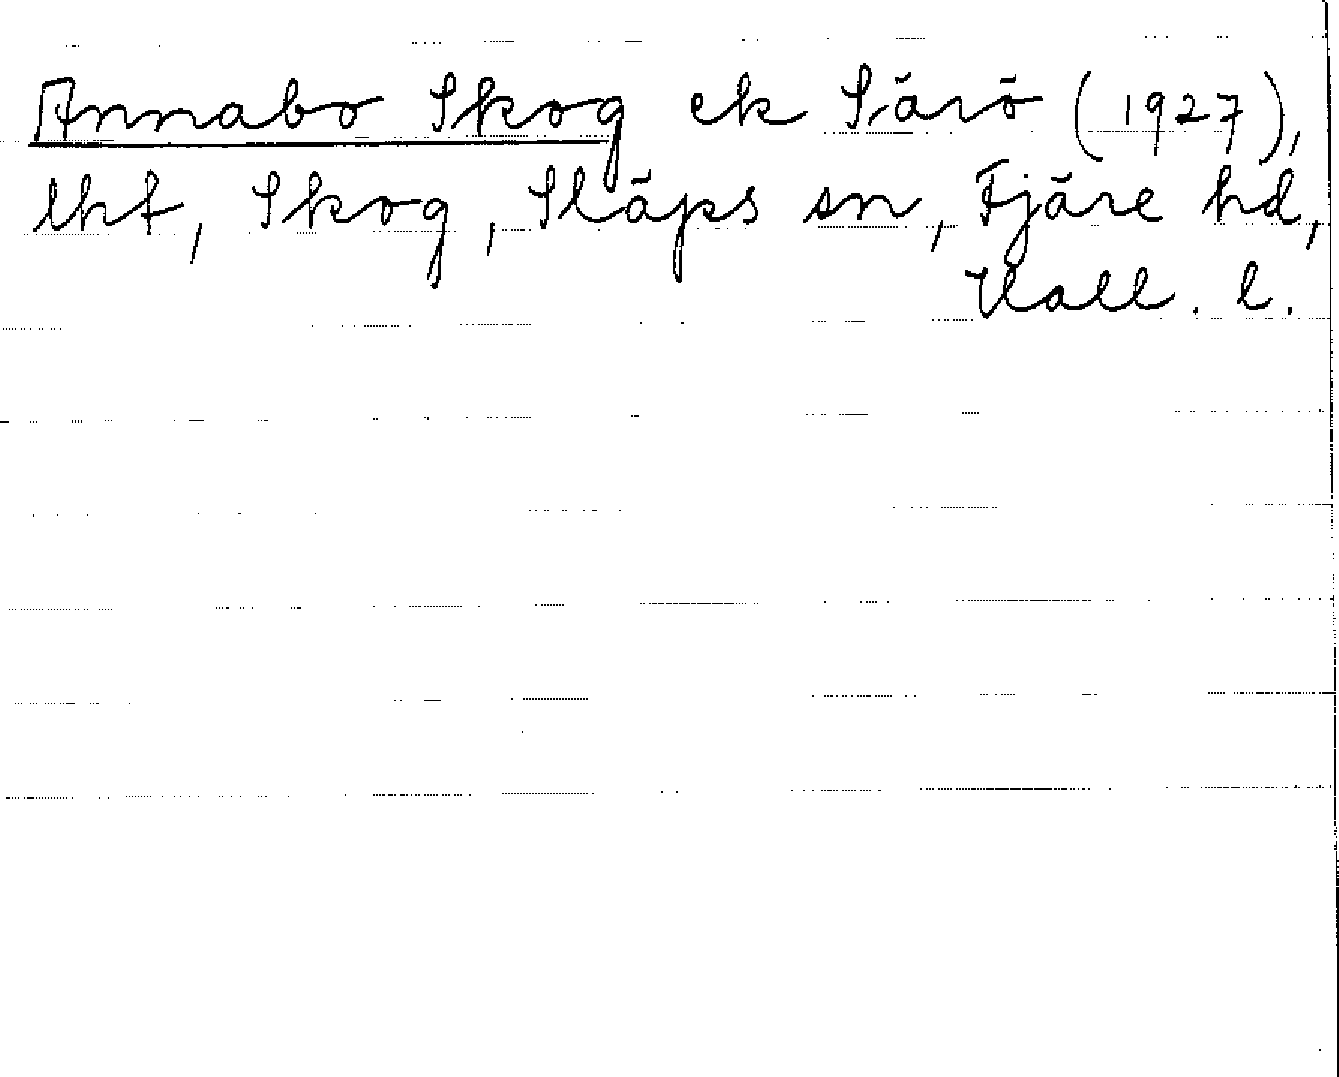 Annabo Skog ek Särö (1927),
lht, Skog, Släps sn, Fjäre hd,
Hall. l.